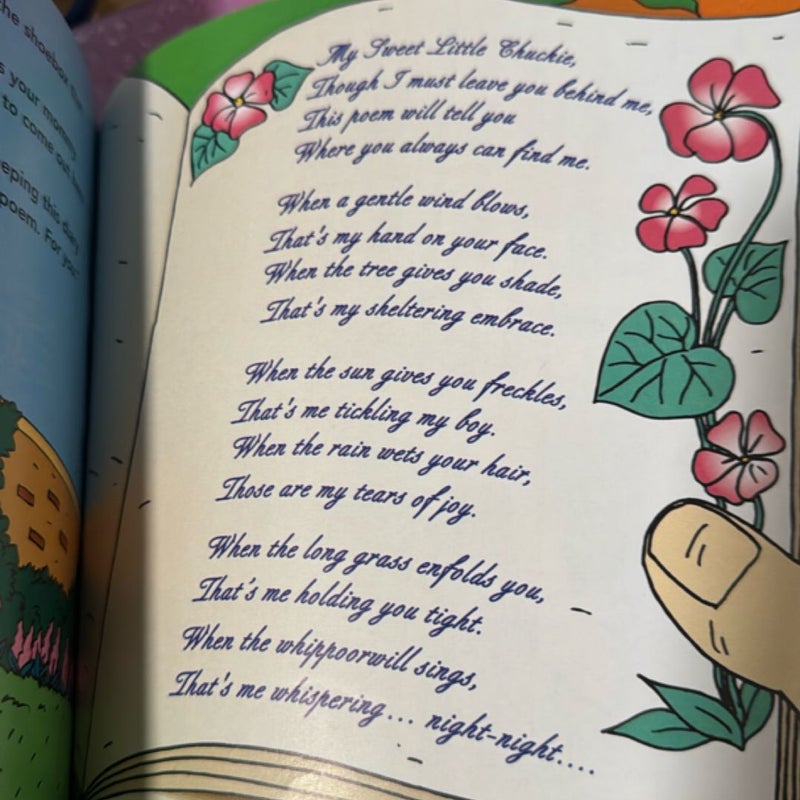 the shoebox
s your mommy
to come out
eping this diary
poem. For you
My Sweet Little Chuckie,
Though I must leave you behind me,
This poem will tell you
Where you always can find me.
When a gentle wind blows,
That's my hand on your face.
When the tree gives you shade,
That's my sheltering embrace.
When the sun gives you freckles,
That's me tickling my boy.
When the rain wets your hair,
Those are my tears of joy.
When the long grass enfolds you,
That's me holding you tight.
When the whippoorwill sings,
That's me whispering... night-night....